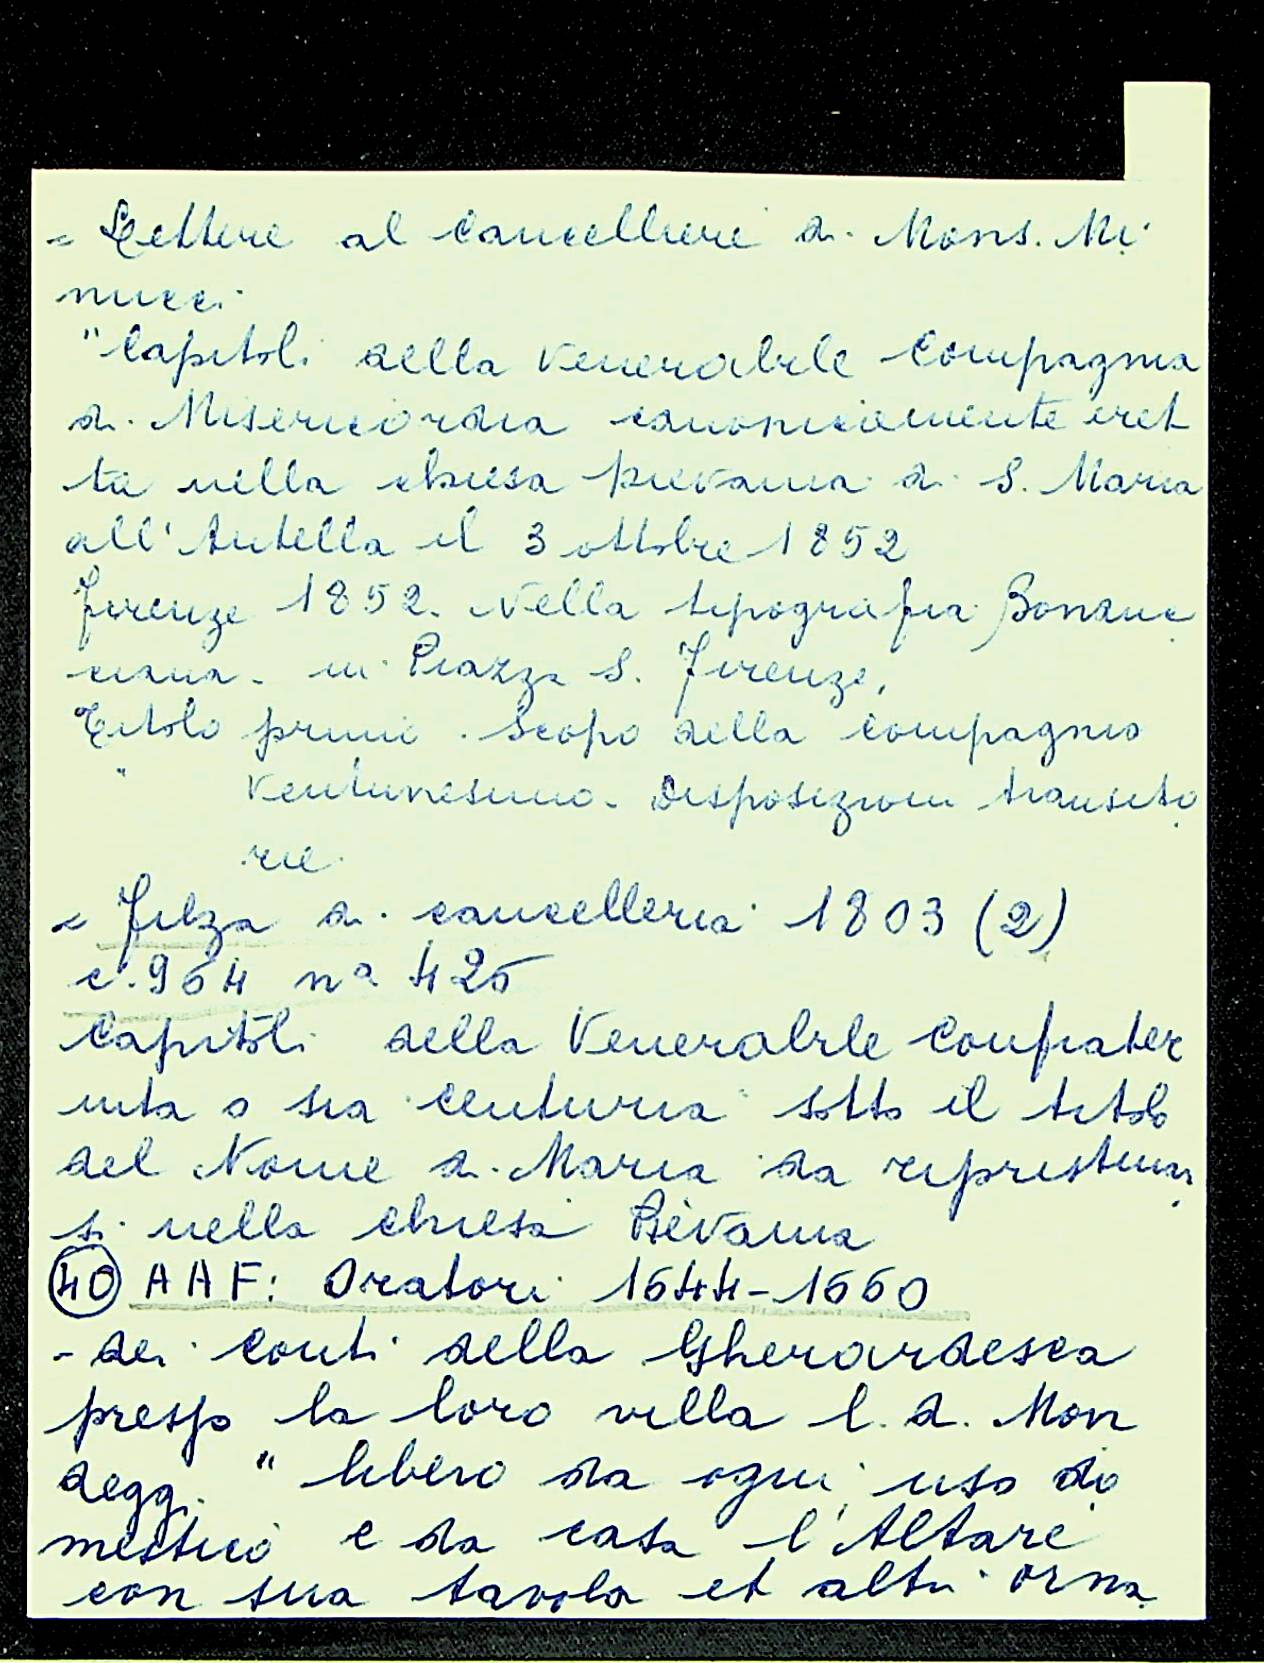 = Lettere al Cancelliere di Mons. Mi
nucci
"Capitoli della Venerabile Compagnia
di Misericordia canonicamente eret
ta nella chiesa pievania di S. Maria
all'Antella il 3 ottobre 1852
Firenze 1852. Nella tipografia Bonduc
ciana - in Piazza S. Firenze,
Titolo primo. Scopo della Compagnia
" Ventunesimo. Disposizioni transito
rie.
= Filza di cancelleria 1803 (2)
c. 964 nº 425
Capitoli della Venerabile Confrater
nita o sia centuria sotto il titolo
del Nome di Maria da ripristinar
si nella chiesa Pievania
(40) AAF: Oratori 1644-1660
- dei Conti della Gherardesca
presso la loro villa l.d. Mon
deggi "libero da ogni uso do
mestico e da casa l'Altare
con sua tavola et altri orna